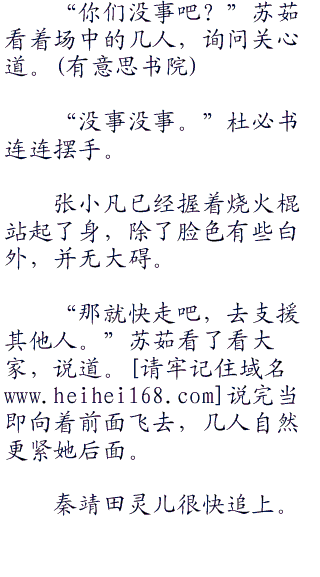 “你们没事吧？”苏茹
看着场中的几人，询问关心
道。(有意思书院)
“没事没事。”杜必书
连连摆手。
张小凡已经握着烧火棍
站起了身，除了脸色有些白
外，并无大碍。
“那就快走吧，去支援
其他人。”苏茹看了看大
家，说道。[请牢记住域名
www.heihei168.com]说完当
即向着前面飞去，几人自然
更紧她后面。
秦靖田灵儿很快追上。